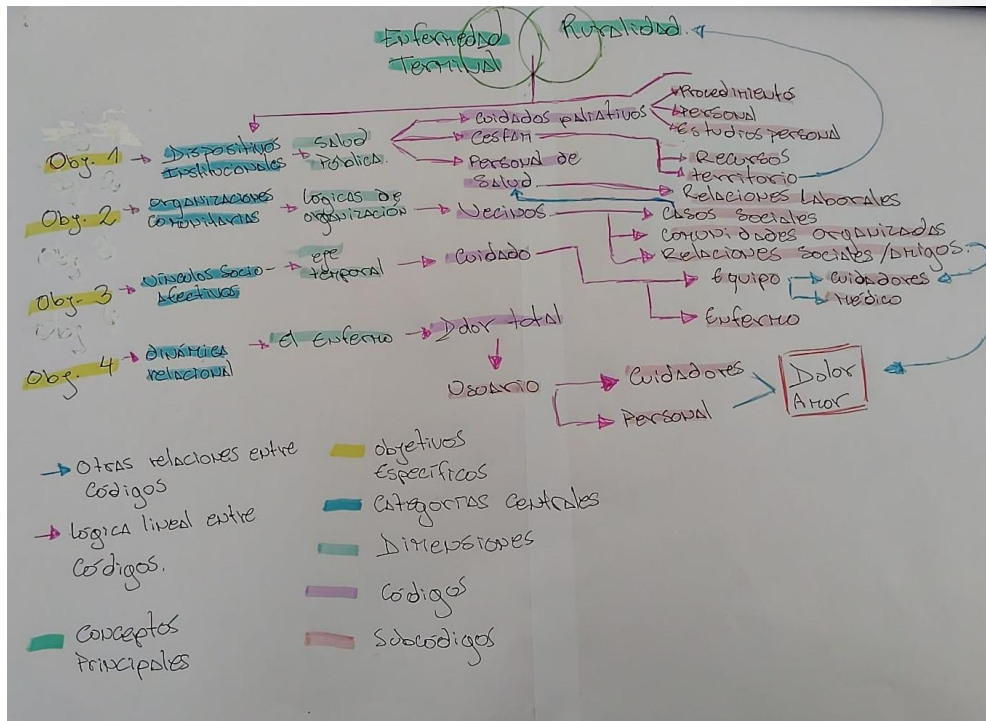 Enfermedad Terminal
Ruralidad.
Obj. 1
Dispositivos Institucionales
Salud Pública.
Cuidados paliativos
Cesfam
Personal de Salud
Procedimientos
Personal
Estudios personal
Recursos
territorio
Obj. 2
organizaciones comunitarias
logicas de organización
Vecinos
Relaciones Laborales
Casos Sociales
Comunidades organizadas
Relaciones Sociales/Amigos.
Obj. 3
Vínculos Socio-Afectivos
eje temporal
Cuidado
Equipo
Cuidadores
Médico
Enfermo
Obj. 4
dinámica relacional
El Enfermo
Dolor total
Usuario
Cuidadores
Personal
Dolor
Amor
Otras relaciones entre
Códigos
lógica lineal entre
Códigos.
Conceptos
Principales
Objetivos
Específicos
Categorías Centrales
Dimensiones
Códigos
Subcódigos